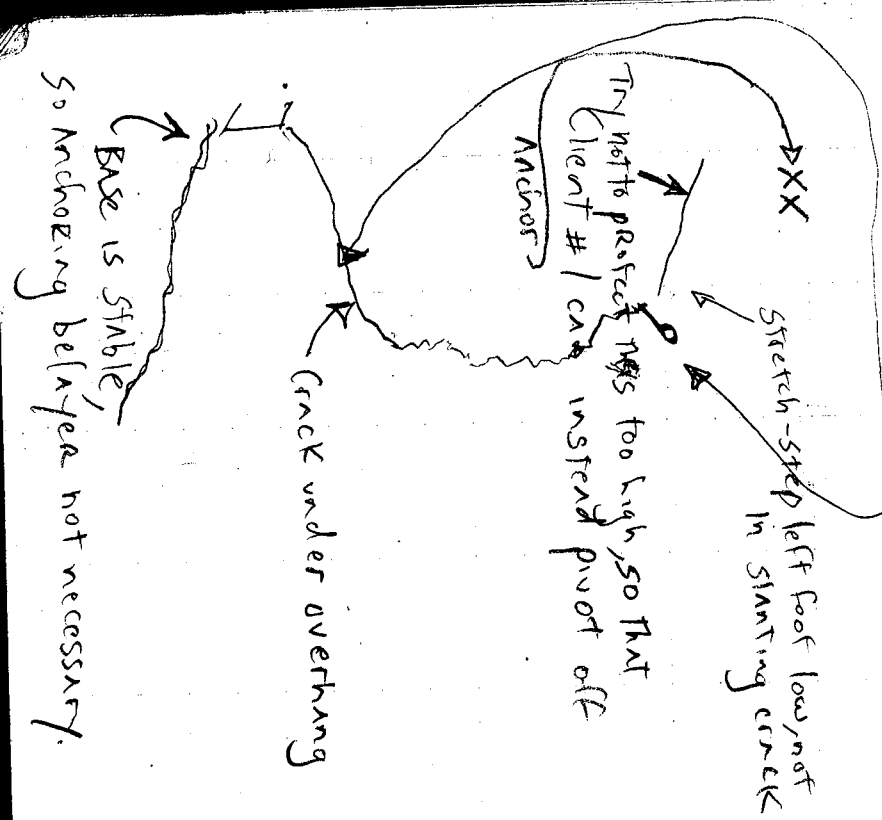 XX
Stretch-step left foot low, not
in slanting crack
Try not to protect this too high, so that
Client #1 can instead pivot off
Anchor
Crack under overhang
Base is stable,
so anchoring belayer not necessary.